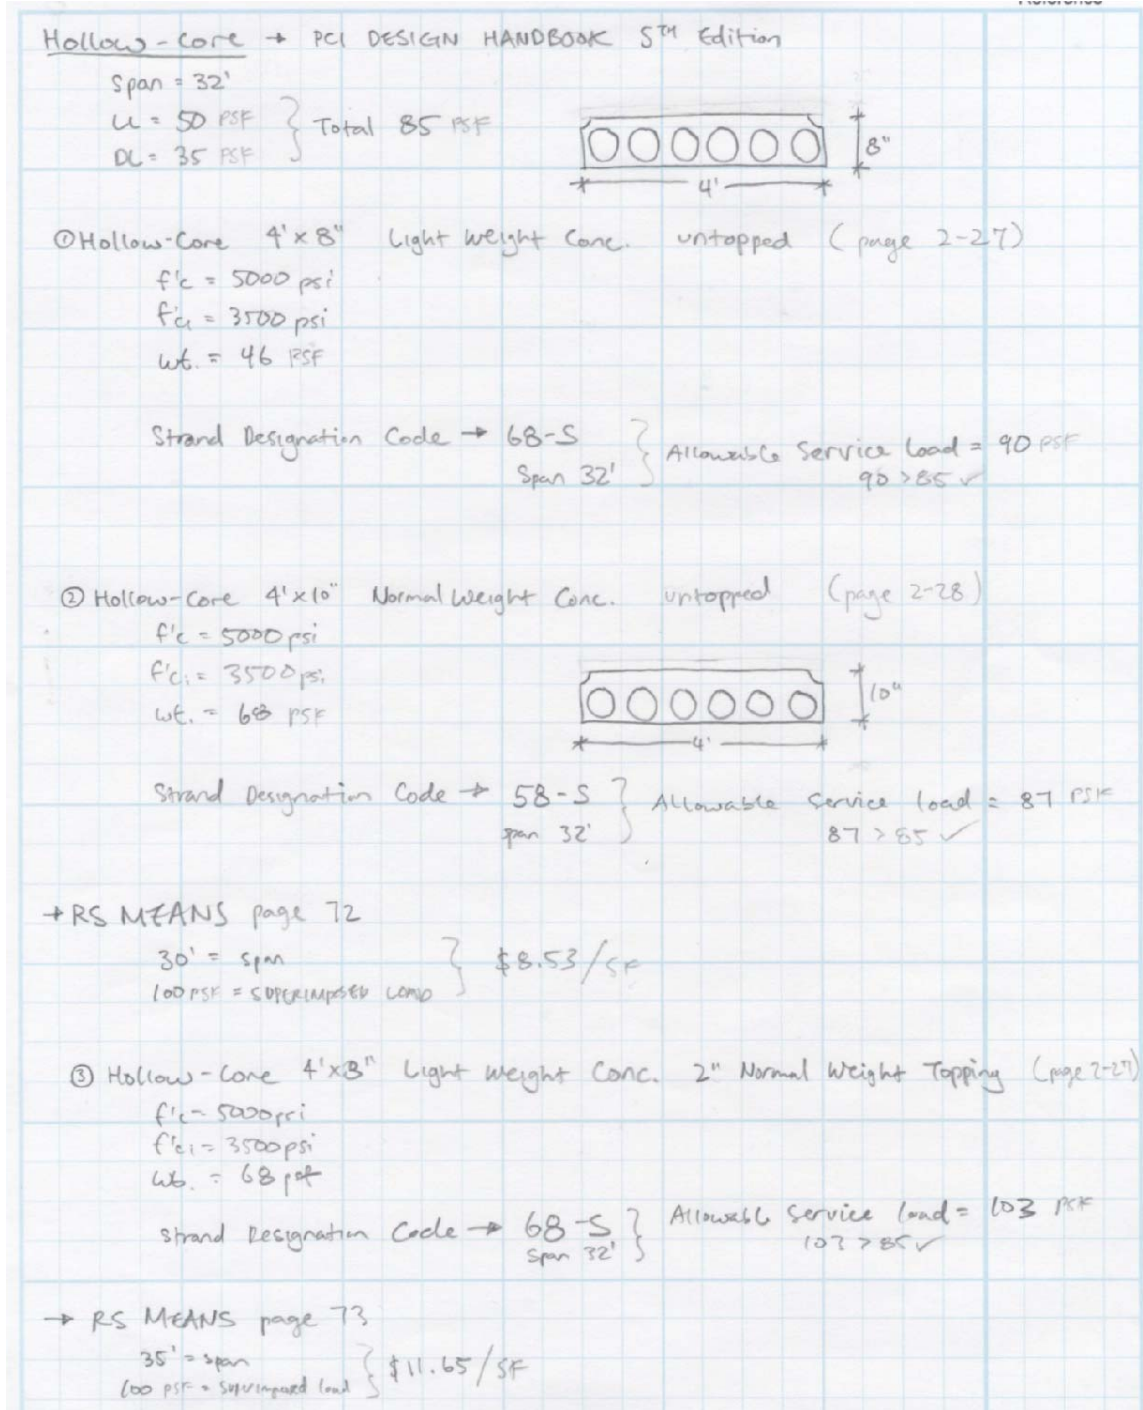 Hollow-Core → PCI DESIGN HANDBOOK 5TH Edition
Span = 32'
LL = 50 PSF
DL = 35 PSF
Total 85 PSF
8"
4'
① Hollow-Core 4'x8" Light Weight Conc. untopped (page 2-27)
f'c = 5000 psi
f'ci = 3500 psi
wt. = 46 PSF
Strand Designation Code → 68-S
Span 32'
Allowable Service Load = 90 PSF
90 > 85 ✓
② Hollow-Core 4'x10" Normal Weight Conc. untopped (page 2-28)
f'c = 5000 psi
f'ci = 3500 psi
wt. = 68 PSF
10"
4'
Strand Designation Code → 58-S
span 32'
Allowable Service load = 87 PSF
87 > 85 ✓
→ RS MEANS page 72
30' = span
100 PSF = SUPERIMPOSED LOAD
$8.53/SF
③ Hollow-Core 4'x8" Light Weight Conc. 2" Normal Weight Topping (page 2-27)
f'c = 5000 psi
f'ci = 3500 psi
wt. = 68 psf
Strand Designation Code → 68-S
Span 32'
Allowable Service load = 103 PSF
103 > 85 ✓
→ RS MEANS page 73
35' = span
100 PSF = Superimposed load
$11.65/SF